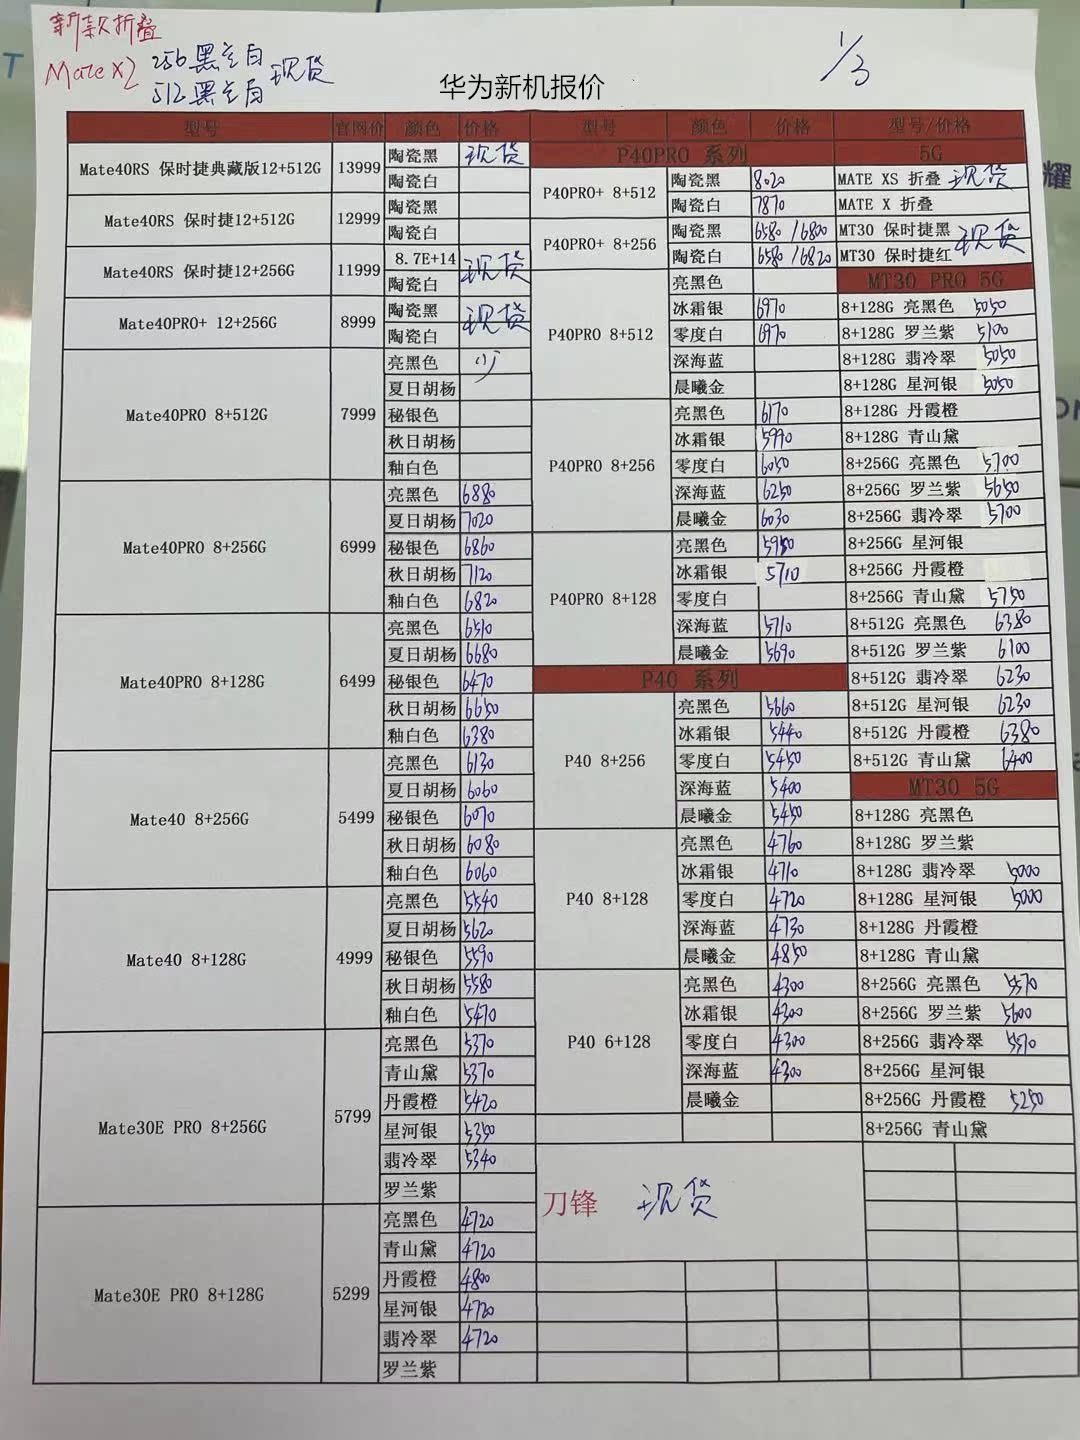 新款折叠
Mate X2 256 黑兰白 现货
512 黑兰白
华为新机报价
1/3
耀
型号 官网价 颜色 价格 型号 颜色 价格 型号/价格
Mate40RS 保时捷典藏版12+512G 13999
陶瓷黑 现货
陶瓷白
Mate40RS 保时捷12+512G 12999
陶瓷黑
陶瓷白
Mate40RS 保时捷12+256G 11999
8.7E+14 现货
陶瓷白
Mate40PRO+ 12+256G 8999
陶瓷黑 现货
陶瓷白
Mate40PRO 8+512G 7999
亮黑色 少
夏日胡杨
秘银色
秋日胡杨
釉白色
Mate40PRO 8+256G 6999
亮黑色 6880
夏日胡杨 7020
秘银色 6860
秋日胡杨 7120
釉白色 6820
Mate40PRO 8+128G 6499
亮黑色 6510
夏日胡杨 6680
秘银色 6470
秋日胡杨 6650
釉白色 6380
Mate40 8+256G 5499
亮黑色 6130
夏日胡杨 6060
秘银色 6070
秋日胡杨 6080
釉白色 6060
Mate40 8+128G 4999
亮黑色 5540
夏日胡杨 5620
秘银色 5590
秋日胡杨 5580
釉白色 5470
Mate30E PRO 8+256G 5799
亮黑色 5370
青山黛 5370
丹霞橙 5420
星河银 5350
翡冷翠 5340
罗兰紫
Mate30E PRO 8+128G 5299
亮黑色 4720
青山黛 4720
丹霞橙 4800
星河银 4720
翡冷翠 4720
罗兰紫
P40PRO 系列
P40PRO+ 8+512
陶瓷黑 8020
陶瓷白 7870
P40PRO+ 8+256
陶瓷黑 6580 /6800
陶瓷白 6580 /6820
P40PRO 8+512
亮黑色
冰霜银 6970
零度白 6970
深海蓝
晨曦金
P40PRO 8+256
亮黑色 6170
冰霜银 5990
零度白 6050
深海蓝 6250
晨曦金 6030
P40PRO 8+128
亮黑色
冰霜银 5710
零度白
深海蓝 5710
晨曦金 5690
P40 系列
P40 8+256
亮黑色 5660
冰霜银 5440
零度白 5450
深海蓝 5400
晨曦金 5450
P40 8+128
亮黑色 4760
冰霜银 4710
零度白 4720
深海蓝 4730
晨曦金 4850
P40 6+128
亮黑色 4300
冰霜银 4300
零度白 4300
深海蓝 4300
晨曦金
刀锋 现货
5G
MATE XS 折叠 现货
MATE X 折叠
MT30 保时捷黑 现货
MT30 保时捷红
MT30 PRO 5G
8+128G 亮黑色 5050
8+128G 罗兰紫 5100
8+128G 翡冷翠 5050
8+128G 星河银 5050
8+128G 丹霞橙
8+128G 青山黛
8+256G 亮黑色 5700
8+256G 罗兰紫 5650
8+256G 翡冷翠 5700
8+256G 星河银
8+256G 丹霞橙
8+256G 青山黛 5750
8+512G 亮黑色 6380
8+512G 罗兰紫 6100
8+512G 翡冷翠 6230
8+512G 星河银 6230
8+512G 丹霞橙 6380
8+512G 青山黛 6400
MT30 5G
8+128G 亮黑色
8+128G 罗兰紫
8+128G 翡冷翠 5000
8+128G 星河银 5000
8+128G 丹霞橙
8+128G 青山黛
8+256G 亮黑色 5570
8+256G 罗兰紫 5600
8+256G 翡冷翠 5570
8+256G 星河银
8+256G 丹霞橙 5250
8+256G 青山黛